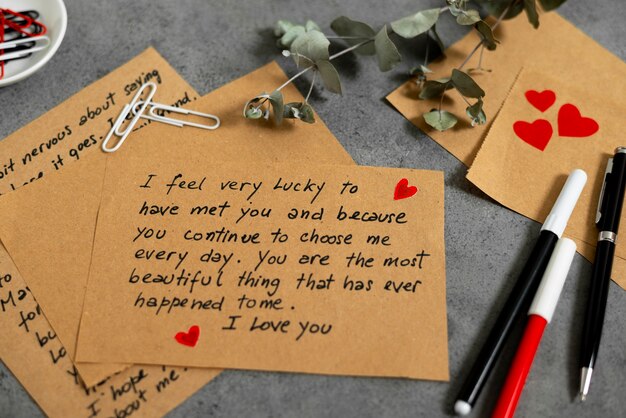 bit nervous about saying
it goes. I feel
I feel very lucky to
have met you and because
you continue to choose me
every day. You are the most
beautiful thing that has ever
happened to me.
I love you
I hope
about me